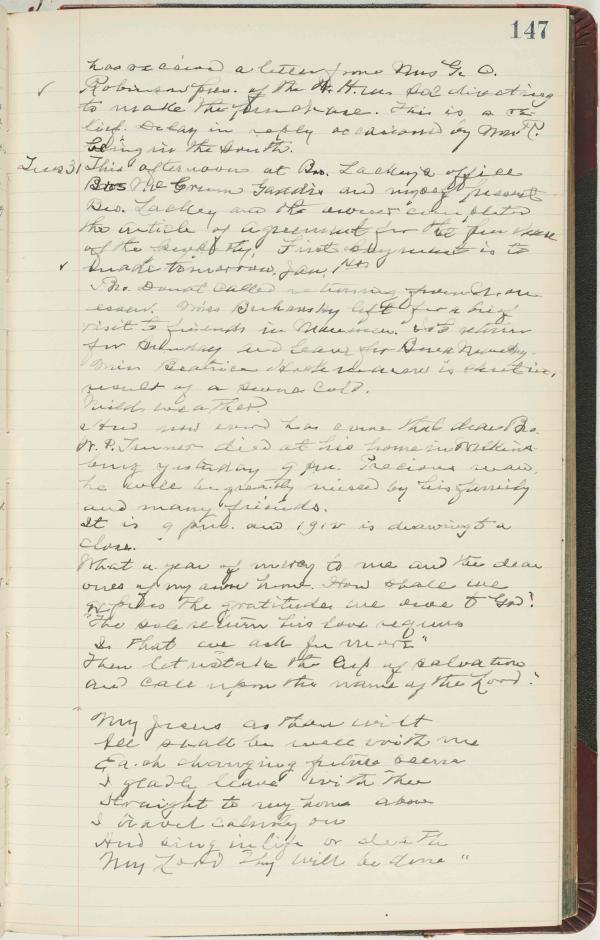 147
has received a letter from Mrs G. O.
Robinson Pres. of the W. H. M. Soc directing
to make the purchase. This is a re-
lief. Delay in reply occasioned by Mrs R.
being in the South.
Tues 31 This afternoon at Bro. Lackey's office
Bros McCrum Gaddis and myself present
Bro. Lackey and the owner completed
the article of agreement for the purchase
of the property. First payment is to
made tomorrow, Jan. 1st
Bro. Donat called returning from
visit to friends in
for Sunday and leave for Monday.
Miss Beatrice is shut in,
result of a severe cold.
Mild weather.
And now word has come that dear Bro.
W. P. Turner died at his home in Wilkins-
burg yesterday 9 pm. Precious man.
he will be greatly missed by his family
and many friends.
It is 9 p.m. and 1912 is drawing to a
close.
What a year of mercy to me and the dear
ones of my own home. How shall we
express the gratitude we owe to God?
"The sole return his love requires
Is that we ask for more"
Then let us take the Cup of salvation
and call upon the name of the Lord."
"My Jesus as thou wilt
All shall be well with me
Each changing future scene
I gladly leave with Thee
Straight to my home above
I travel calmly on
And sing in life or death
My Lord Thy will be done"